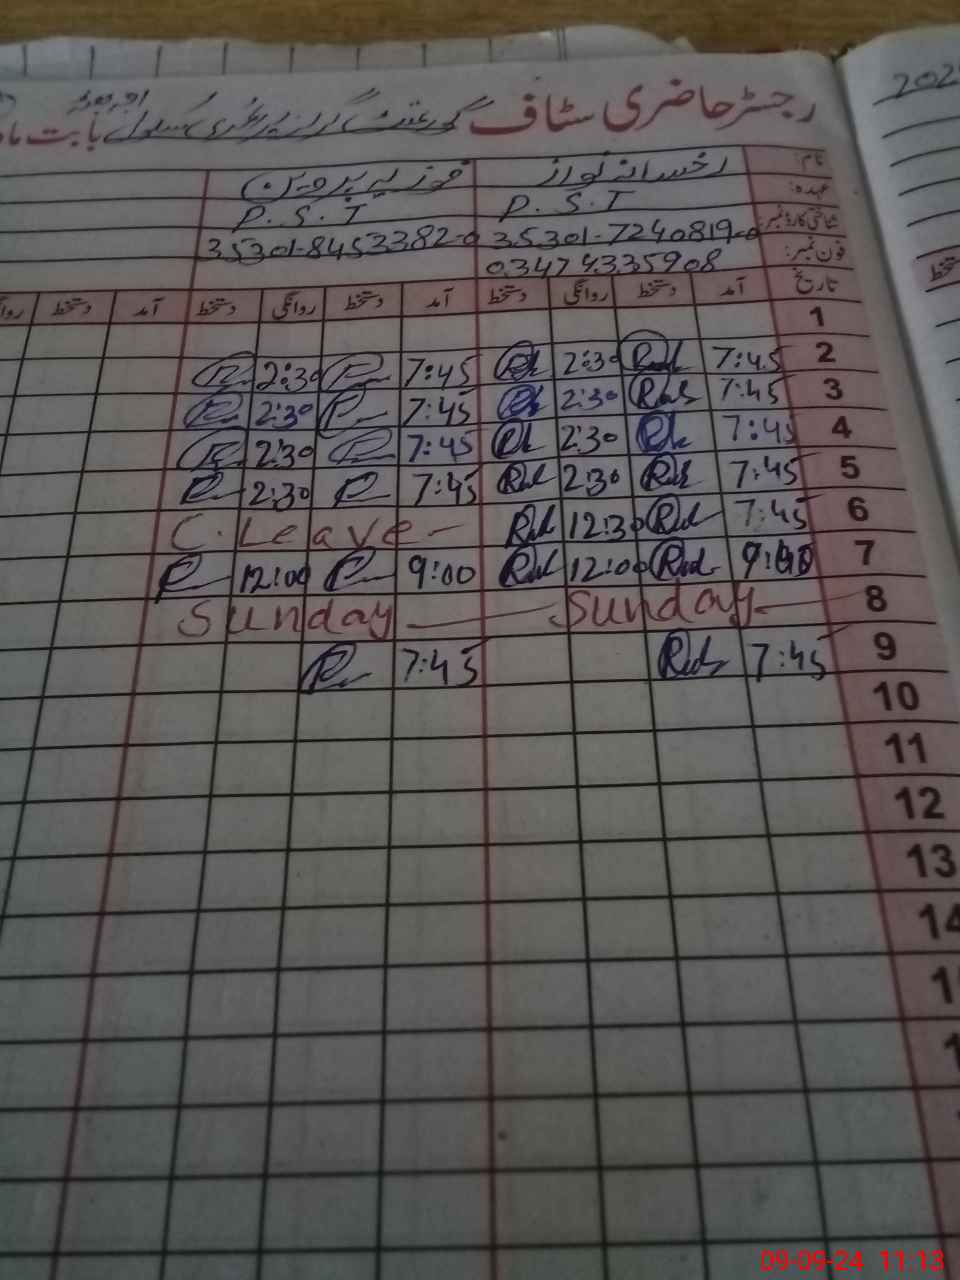 202
رجسٹر حاضری سٹاف گورنمنٹ گرلز پرائمری سکول بابت ماہ
نام: رخسانہ نواز فوزیہ پروین
عہدہ: P.S.T P.S.T
شناختی کارڈ نمبر: 35301-7240819-0 35301-8453382-0
فون نمبر: 03474335908
تاریخ آمد دستخط روانگی دستخط آمد دستخط روانگی دستخط آمد دستخط
1
2 7:45 2:30 7:45 2:30
3 7:45 2:30 7:45 2:30
4 7:45 2:30 7:45 2:30
5 7:45 2:30 7:45 2:30
6 7:45 12:30 C.Leave
7 12:00 9:00 12:00
8 Sunday Sunday
9 7:45 7:45
10
11
12
13
14
09-09-24 11:13